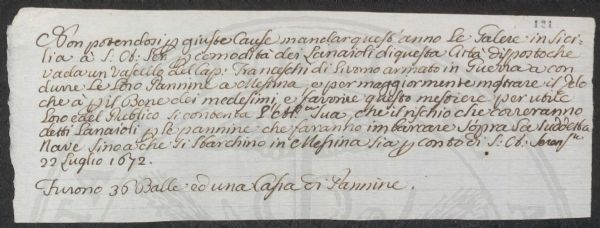 121
Non potendosi p giuste Cause mandar quest'anno Le Galere in Sici-
lia à S. Ob. Ser. p comodità dei Lanaioli di questa Città disposto che
vada un Vasello del Cap. Franceschi di Livorno armato in Guerra a con
durre Le Loro Pannine a Messina, e per maggiormente mostrare il Zelo
che à p il Bene dei medesimi, e favorire questo mestiere per utile
loro e del Publico si contenta l' Sua, che il rischio che correranno
detti Lanaioli p le pannine che faranno imbarcare sopra La sudetta
Nave sino a che si sbarchino in Messina sia p conto di S. Ob.
22 Luglio 1672.
Furono 36 Balle ed una Cassa di Pannine.